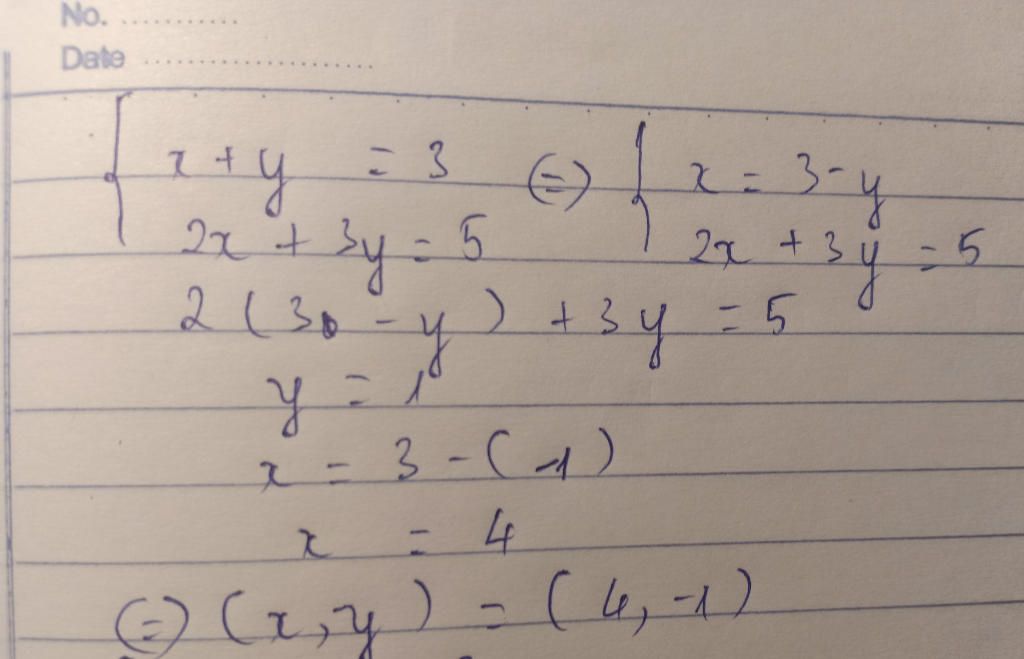 No. ..........
Date ....................
{ x + y = 3 ⇔ { x = 3 - y
2x + 3y = 5 2x + 3y = 5
2 ( 3 - y ) + 3y = 5
y = 1
x = 3 - ( -1 )
x = 4
⇔ ( x, y ) = ( 4, -1 )